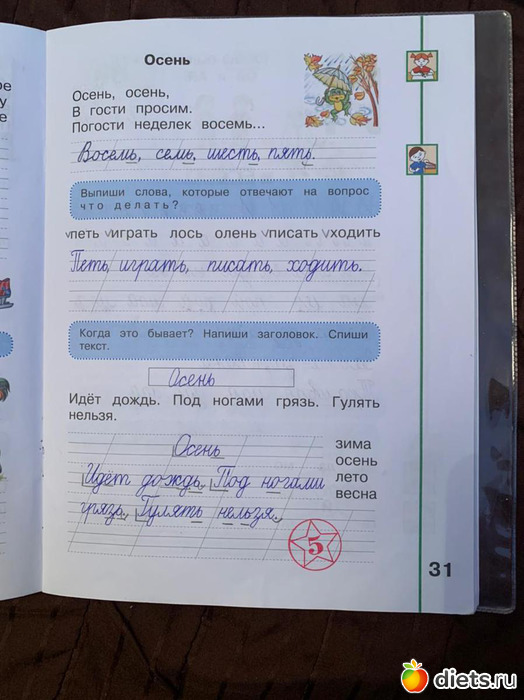 Осень
Осень, осень,
В гости просим.
Погости неделек восемь...
Восемь, семь, шесть, пять.
Выпиши слова, которые отвечают на вопрос
что делать?
петь играть лось олень писать ходить
Петь, играть, писать, ходить.
Когда это бывает? Напиши заголовок. Спиши
текст.
Осень
Идёт дождь. Под ногами грязь. Гулять
нельзя.
Осень
Идёт дождь. Под ногами
грязь. Гулять нельзя.
зима
осень
лето
весна
5
31
diets.ru